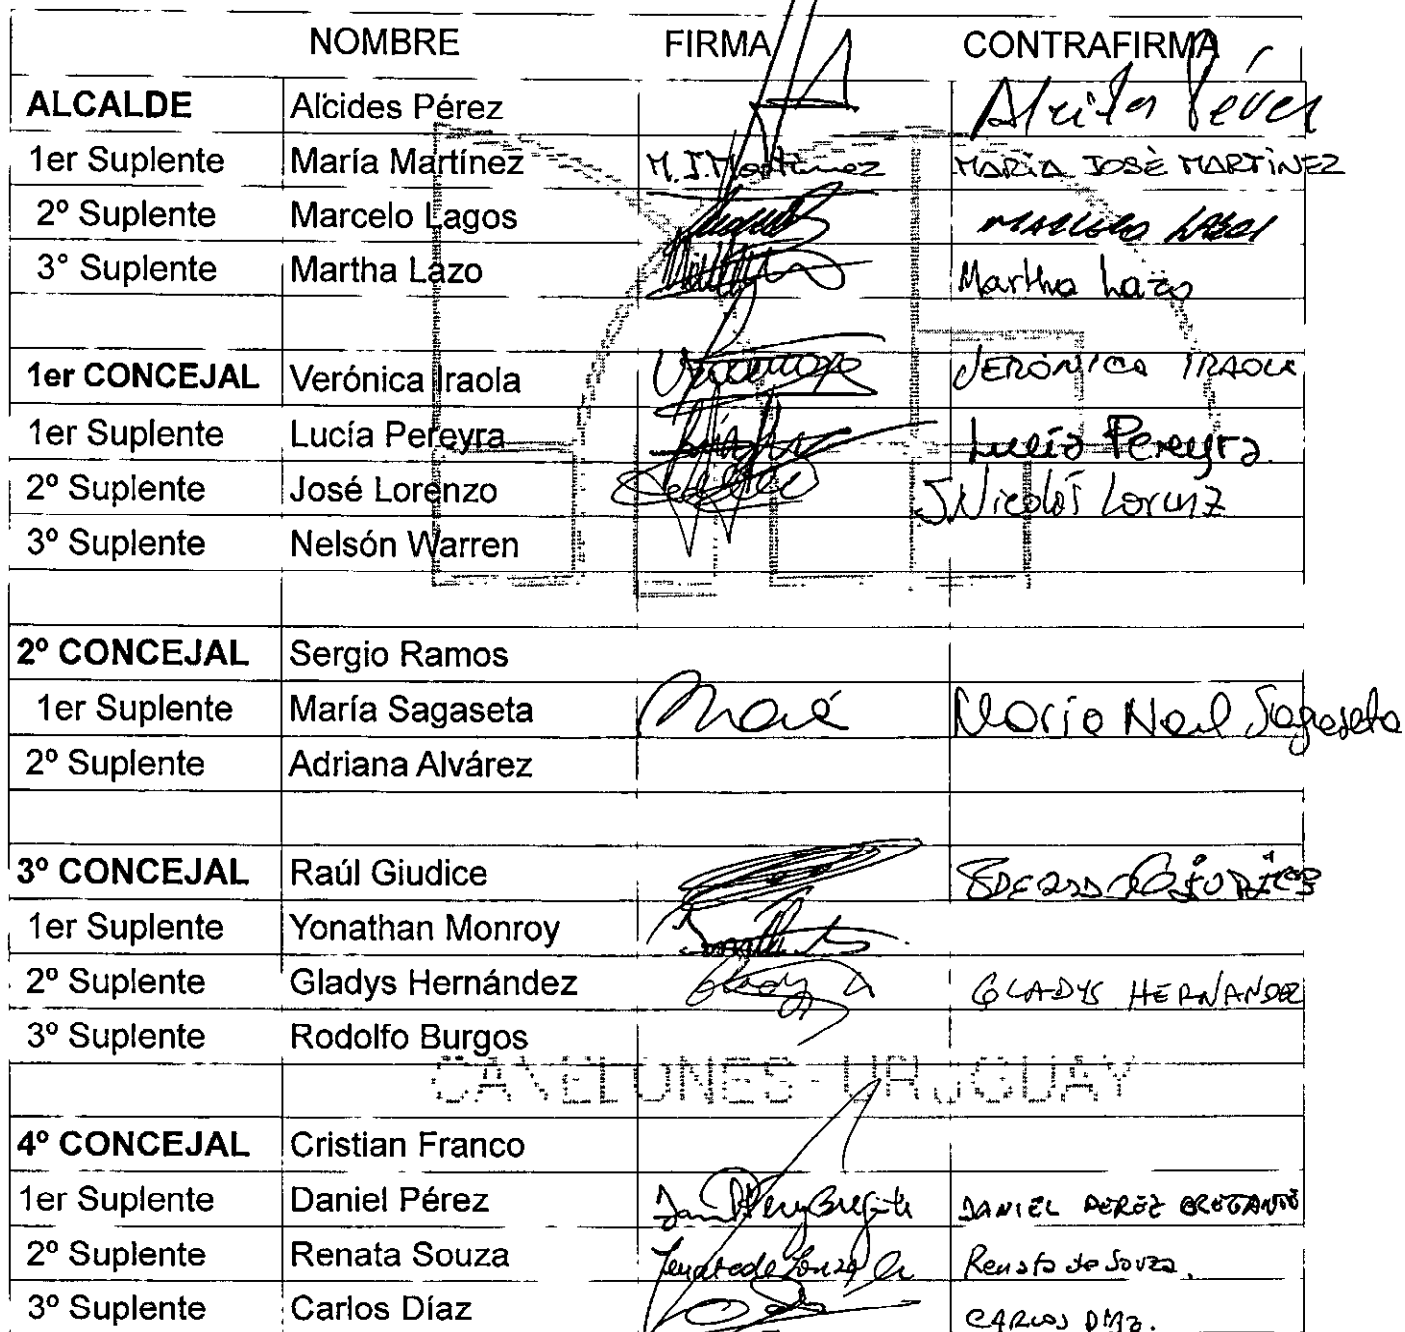 NOMBRE FIRMA CONTRAFIRMA
ALCALDE Alcides Pérez
1er Suplente María Martínez M.J.Martínez MARÍA JOSÉ MARTÍNEZ
2º Suplente Marcelo Lagos
3° Suplente Martha Lazo Martha Lazo
1er CONCEJAL Verónica Iraola VERÓNICA IRAOLA
1er Suplente Lucía Pereyra Lucía Pereyra
2º Suplente José Lorenzo J Nicolás
3º Suplente Nelsón Warren
2º CONCEJAL Sergio Ramos
1er Suplente María Sagaseta María Noel Sagaseta
2º Suplente Adriana Alvárez
3º CONCEJAL Raúl Giudice
1er Suplente Yonathan Monroy
2º Suplente Gladys Hernández GLADYS HERNANDEZ
3º Suplente Rodolfo Burgos
CANELONES - URUGUAY
4º CONCEJAL Cristian Franco
1er Suplente Daniel Pérez DANIEL PEREZ
2º Suplente Renata Souza Renata de Souza.
3º Suplente Carlos Díaz CARLOS DIAZ.